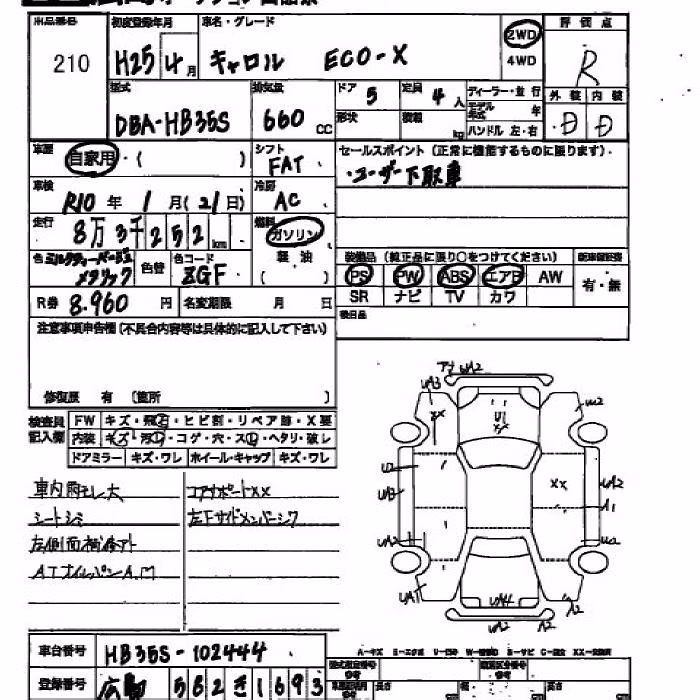 出品番号 初度登録年月 車名・グレード 2WD 評価点
210 H25年4月 キャロル ECO-X 4WD R
型式 排気量 ドア 5 定員 4人 ディーラー・並行 外装 内装
DBA-HB35S 660cc 形状 積載 kg モデル年式 年 D D
ハンドル 左・右
車歴 自家用・( ) シフト FAT セールスポイント (正常に機能するものに限ります)
車検 R10年1月(21日) 冷房 AC ・ユーザー下取車
走行 8万3千252km 燃料 ガソリン
軽油
色 ミルクティーベージュメタリック 色替 色コード ZGF ( ) 装備品 (純正品に限り○をつけてください) 新車保証書
PS PW ABS エアB AW 有・無
R券 8,960円 名変期限 月 日 SR ナビ TV カワ
注意事項申告欄(不具合内容等は具体的に記入して下さい) 後日品
修復歴 有 (箇所 )
検査員記入欄 FW キズ・飛石・ヒビ割・リペア跡・X要
内装 キズ・汚れ・コゲ・穴・スレ・ヘタリ・破レ
ドアミラー キズ・ワレ ホイール・キャップ キズ・ワレ
車内雨モレ大 コアサポートXX
シートシミ 左Fサイドメンバーシワ
左側面補修アト
ATオイルパンA.M
アナ UA2
UA3 XX U1 XX U2
U2 XX UA2
UA3 A1
UA2 U2
UA1 UA4 A2
UA2 A2
車台番号 HB35S-102444
A-キズ E-エクボ
登録番号 広島 582 き 1693
長さ 幅 高さ